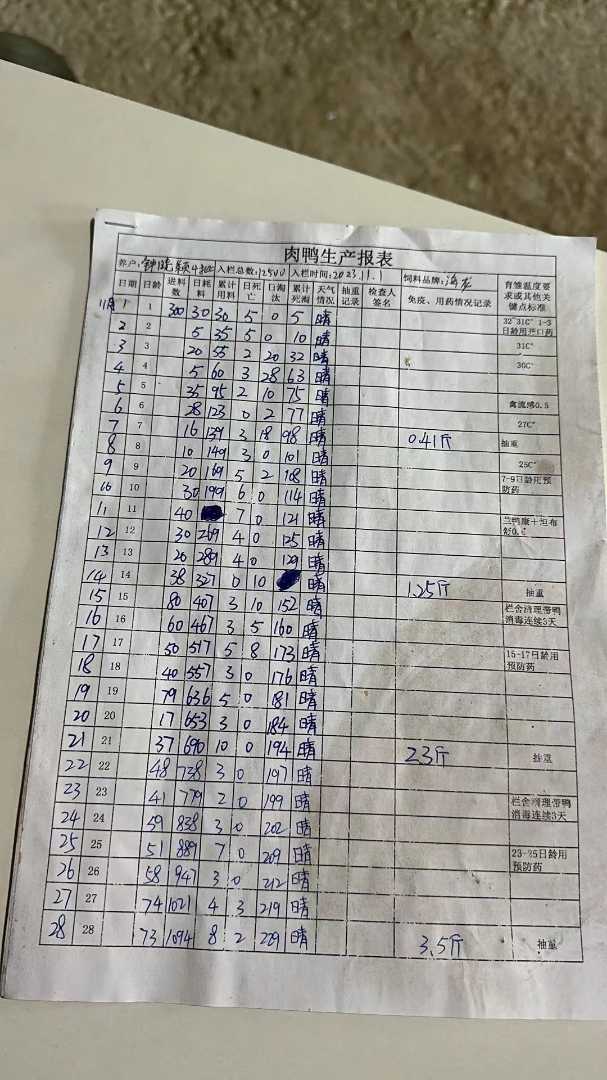 肉鸭生产报表
养户: 入栏总数:12500 入栏时间:2023.11.1 饲料品牌:
日期 日龄 进料数 日耗料 累计用料 日死亡 日淘汰 累计死淘 天气情况 抽重记录 检查人签名 免疫、用药情况记录 育雏温度要求或其他关键点标准
11月1 1 300 30 30 5 0 5 晴 32-31C° 1-3日龄用开口药
2 2 5 35 5 0 10 晴 31C°
3 3 20 55 2 20 32 晴 30C°
4 4 5 60 3 28 63 晴
5 5 35 95 2 10 75 晴 禽流感0.5
6 6 28 123 0 2 77 晴 27C°
7 7 16 139 3 18 98 晴 0.41斤 抽重
8 8 10 149 3 0 101 晴 25C°
9 9 20 169 5 2 108 晴 7-9日龄用预防药
10 10 30 199 6 0 114 晴
11 11 40 7 0 121 晴
12 12 30 269 4 0 125 晴
13 13 20 289 4 0 129 晴
14 14 38 327 0 10 晴 1.25斤 抽重
15 15 80 407 3 10 152 晴 栏舍清理带鸭消毒连续3天
16 16 60 467 3 5 160 晴
17 17 50 517 5 8 173 晴 15-17日龄用预防药
18 18 40 557 3 0 176 晴
19 19 79 636 5 0 181 晴
20 20 17 653 3 0 184 晴
21 21 37 690 10 0 194 晴 2.3斤 抽重
22 22 48 738 3 0 197 晴
23 23 41 779 2 0 199 晴 栏舍清理带鸭消毒连续3天
24 24 59 838 3 0 202 晴
25 25 51 889 7 0 209 晴 23-25日龄用预防药
26 26 58 947 3 0 212 晴
27 27 74 1021 4 3 219 晴
28 28 73 1094 8 2 229 晴 3.5斤 抽重